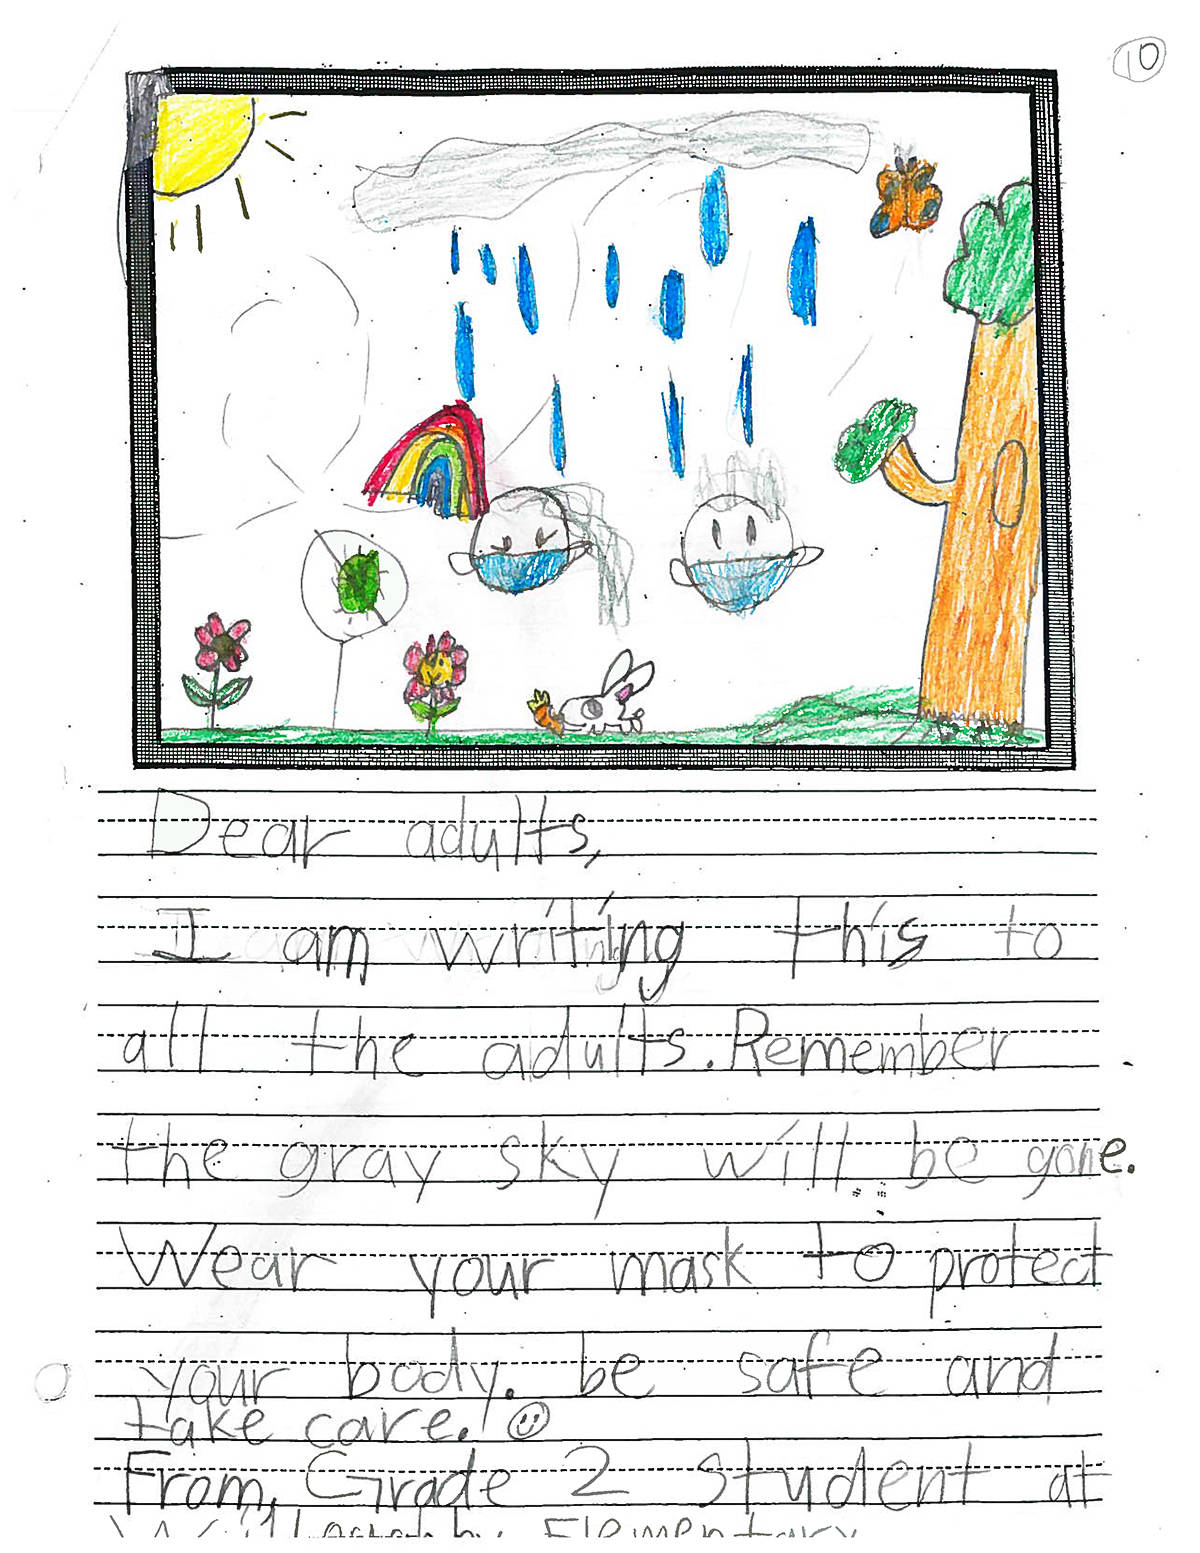 10
Dear adults,
I am writing this to
all the adults. Remember
the gray sky will be gone.
Wear your mask to protect
your body. be safe and
take care.
From, Grade 2 student at
Elementary